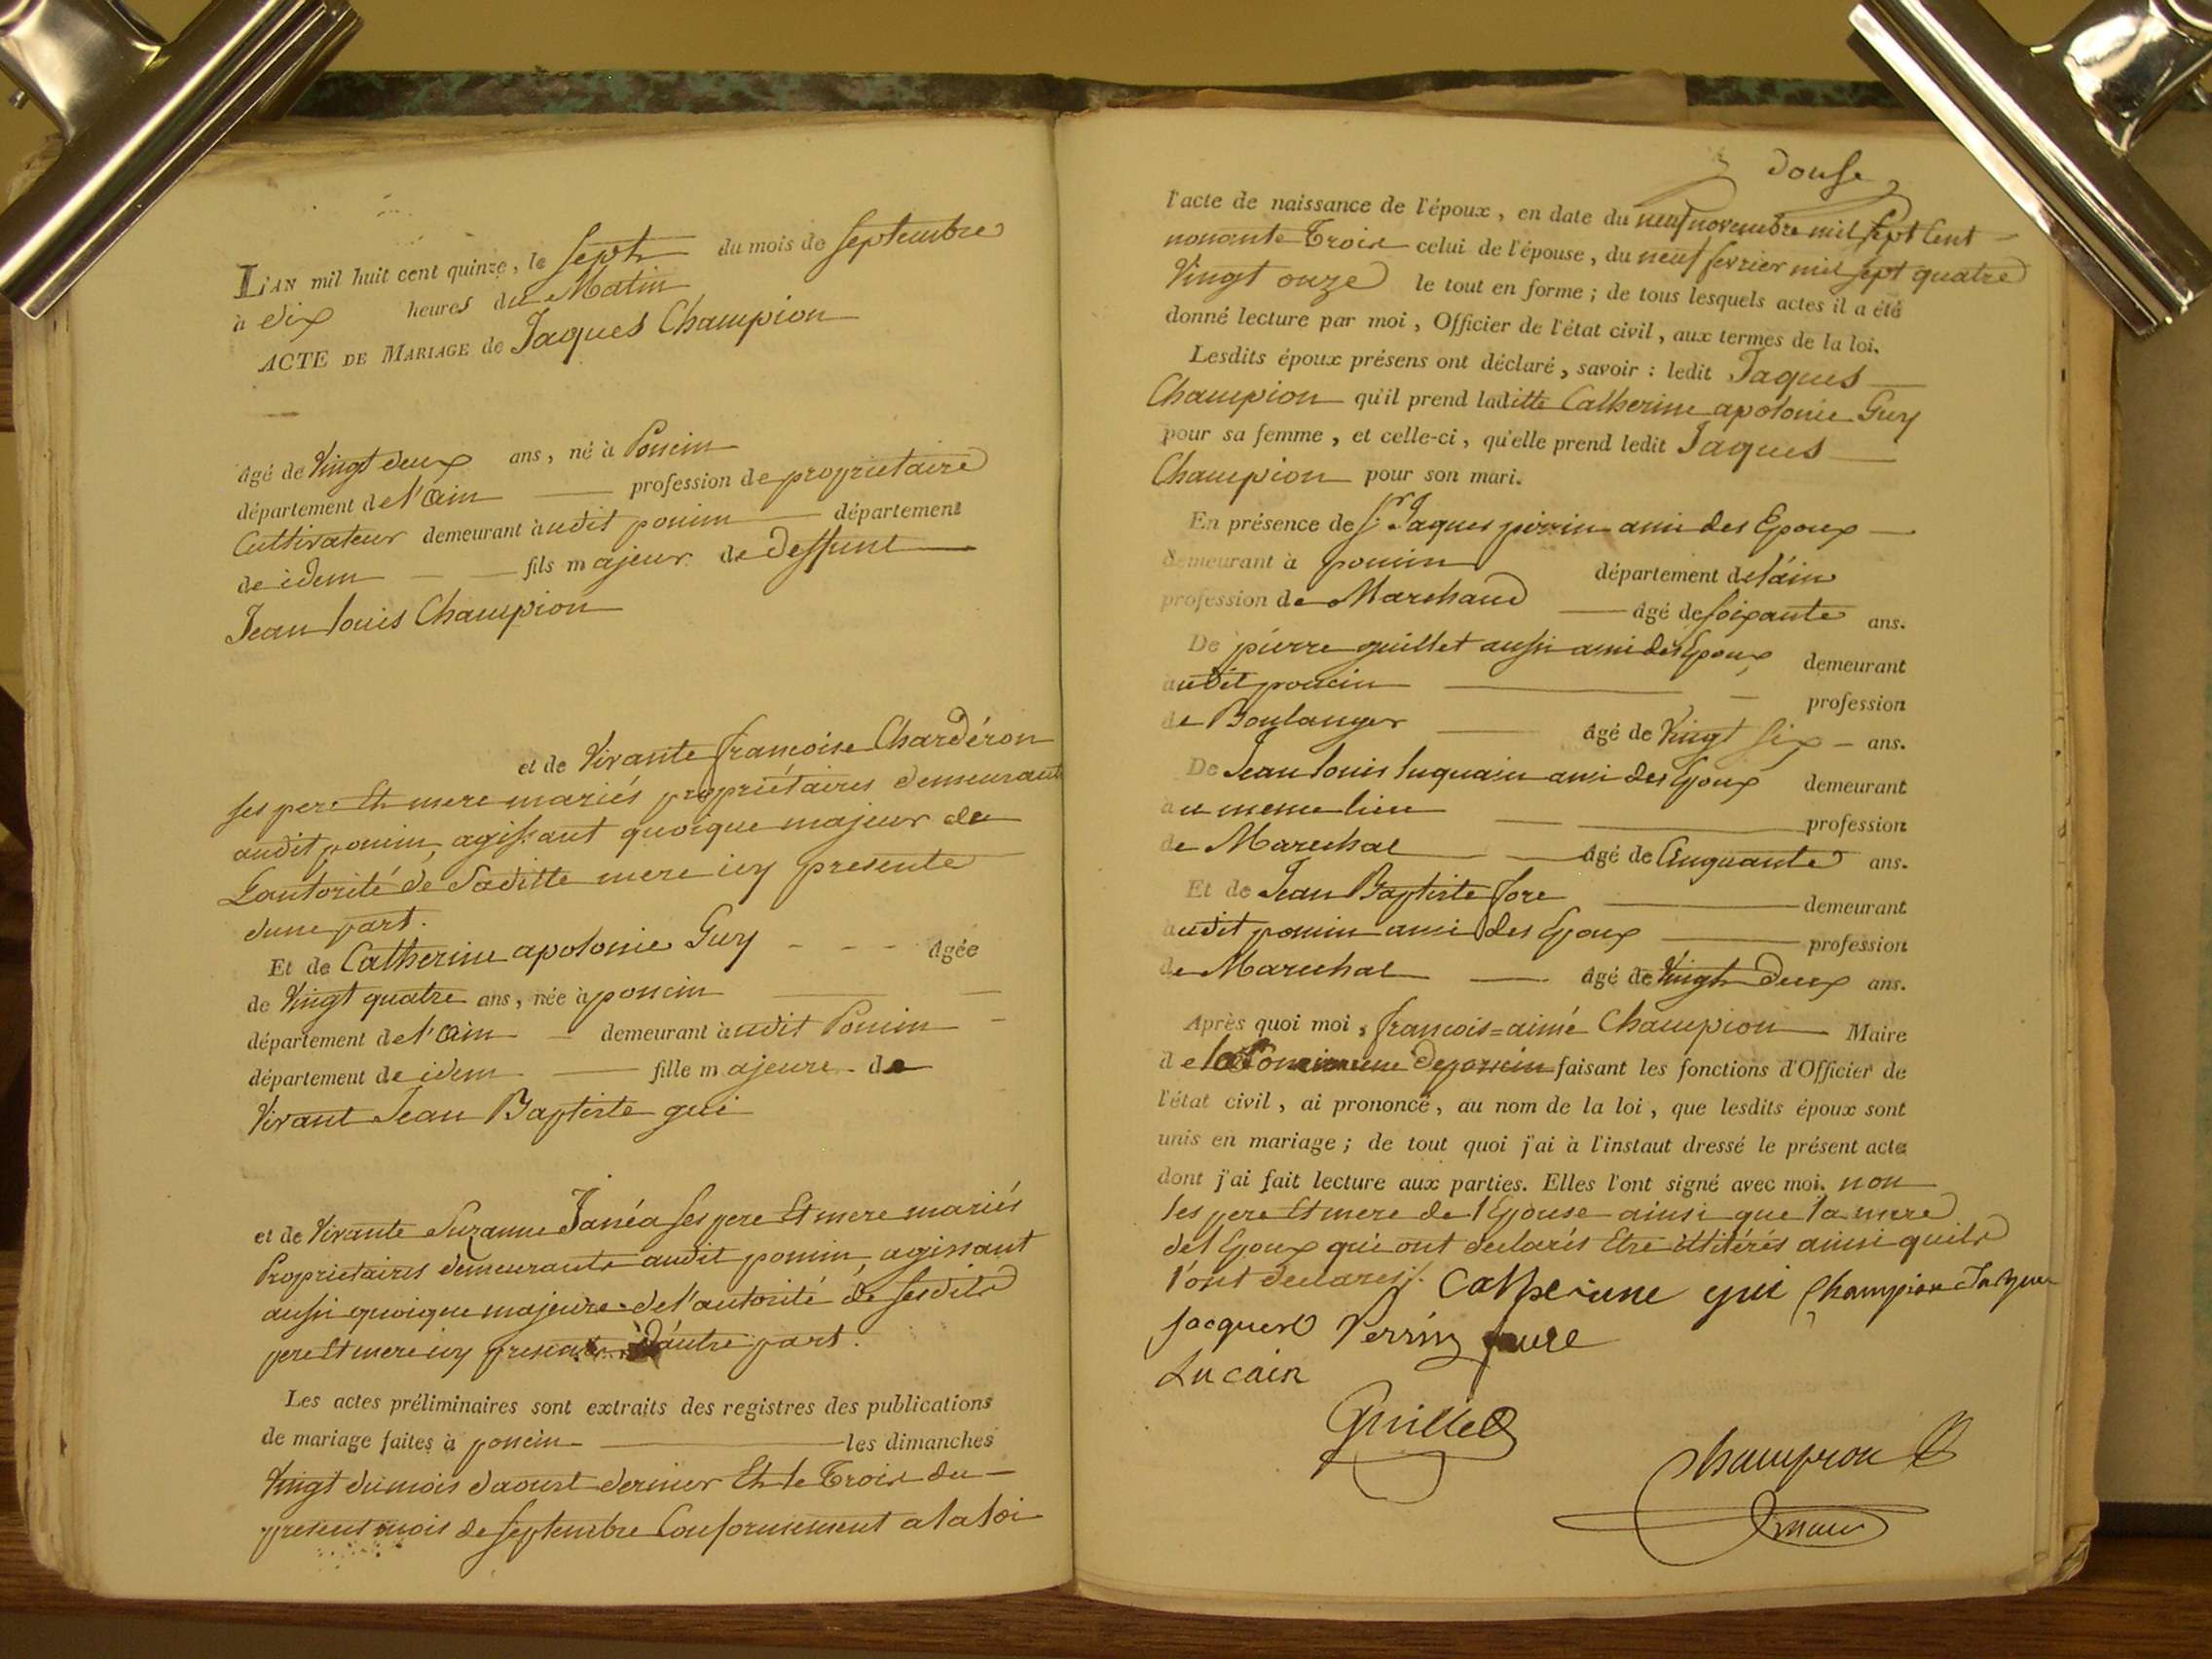 L'AN mil huit cent quinze, le Sept du mois de Septembre
à dix heures du Matin
ACTE DE MARIAGE de Jaques Champion
âgé de Vingt deux ans, né à Poncin
département de l'ain profession de proprietaire
Cultivateur demeurant audit poncin département
de idem fils majeur de deffunt
Jean louis Champion
et de Vivante françoise Chardéron
ses pere Et mere mariés propriétaires demeurant
audit poncin, agissant quoique majeur de
Lautorité de Saditte mere icy presente
dune part.
Et de Catherine apolonie Guy âgée
de Vingt quatre ans, née à poncin
département de l'ain demeurant audit Poncin
département de idem fille majeure de
Vivant Jean Baptiste gui
et de Vivante Suzanne Janéa ses pere Et mere mariés
Proprietaires demeurants audit poncin, agissant
aussi quoique majeure de l'autorité de sesdits
pere Et mere icy presents d'autre part.
Les actes préliminaires sont extraits des registres des publications
de mariage faites à poncin les dimanches
Vingt du mois daoust dernier Et le Trois du
present mois de septembre Conformement a la loi
douse
l'acte de naissance de l'époux, en date du neuf novembre mil sept Cent
nonante Trois celui de l'épouse, du neuf fevrier mil sept quatre
Vingt onze le tout en forme; de tous lesquels actes il a été
donné lecture par moi, Officier de l'état civil, aux termes de la loi.
Lesdits époux présens ont déclaré, savoir : ledit Jaques
Champion qu'il prend laditte Catherine apolonie Guy
pour sa femme, et celle-ci, qu'elle prend ledit Jaques
Champion pour son mari.
En présence de Sr Jaques perrin ami des Epoux
demeurant à poncin département de l'ain
profession de Marchand âgé de soixante ans.
De pierre guillet aussi ami des Epoux demeurant
audit poncin profession
de Boulanger âgé de Vingt six ans.
De Jean louis luquain ami des Epoux demeurant
au meme lieu profession
de Marechal âgé de Cinquante ans.
Et de Jean Baptiste fore demeurant
audit poncin ami des Epoux profession
de Marechal âgé de Vingt Deux ans.
Après quoi moi, francois=aimé Champion Maire
de la Commune de poncin faisant les fonctions d'Officier de
l'état civil, ai prononcé, au nom de la loi, que lesdits époux sont
unis en mariage; de tout quoi j'ai à l'instaut dressé le présent acte
dont j'ai fait lecture aux parties. Elles l'ont signé avec moi. non
les pere Et mere de l'Epouse ainsi que la mere
de l'Epoux qui ont declarés Etre illitérés ainsi quils
l'ont declarés. Catherine gui Champion Jaques
jacques Perrin faure
Lucain
Guillet
Champion
maire